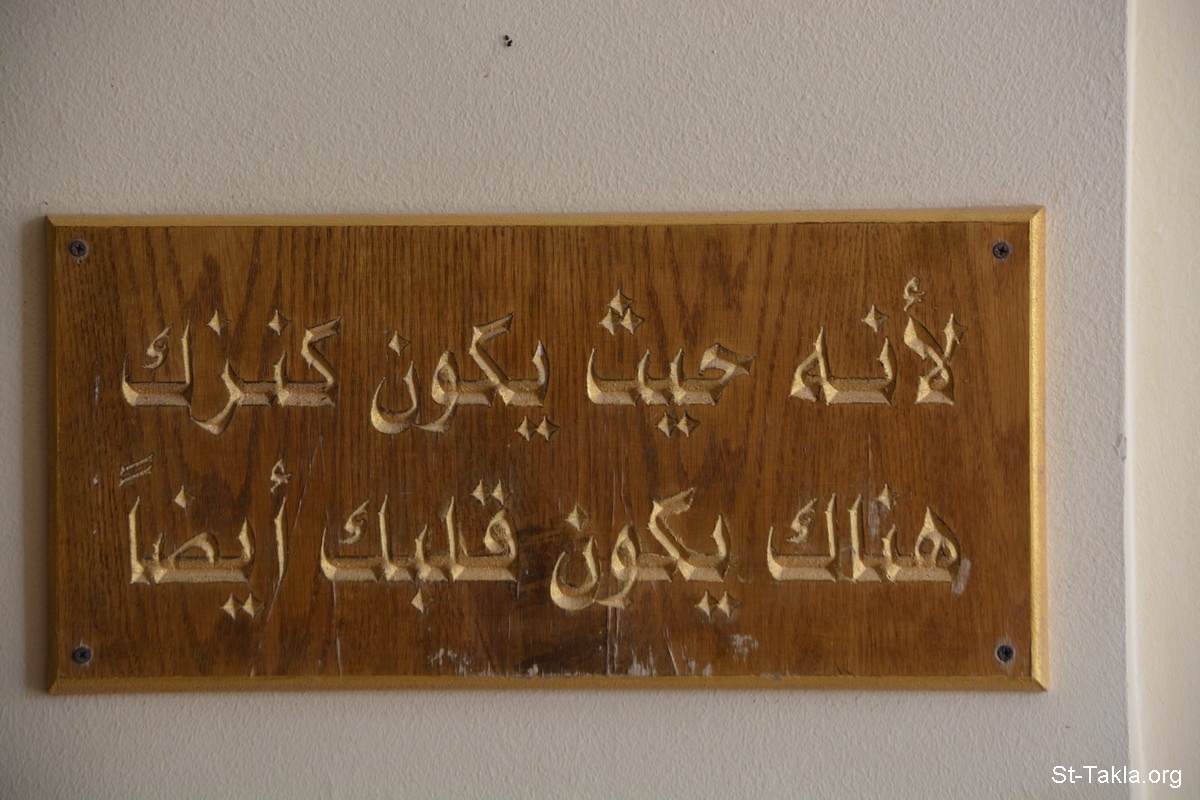 لأنه حيث يكون كنزك
هناك يكون قلبك أيضاً
St-Takla.org